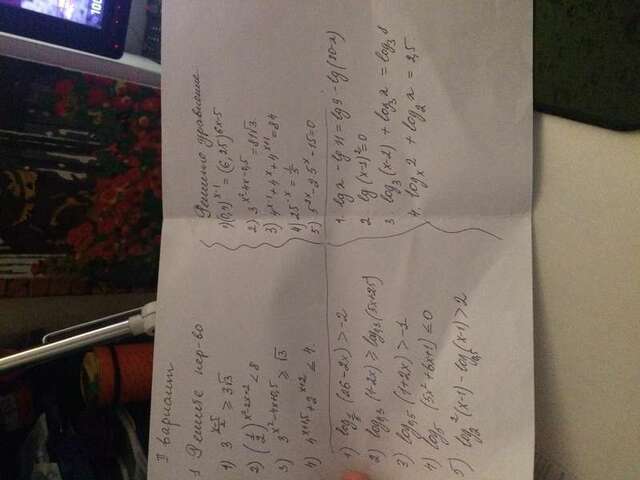 II вариант
1 Решите нер-во
1) 3^((x-5)/2) ≥ 3√3
2) (1/2)^(x²-2x+2) < 8
3) 3^(x²-4x+0,5) ≥ √3
4) 4^(x+1,5) + 2^(x+2) ≤ 4.
1) log_(1/5) (26-2x) > -2
2) log_0,3 (1+2x) ≥ log_0,3 (5x+25)
3) log_0,5 (1+2x) > -1
4) log_5 (5x²+6x+1) ≤ 0
5) log_2^2 (x-1) - log_0,5 (x-1) > 2
Решить уравнение
1) (0,4)^(x-1) = (6,25)^(6x-5)
2) 3^(x²-4x-0,5) = 81√3.
3) 4^(x-1) + 4^x + 4^(x+1) = 84
4) 25^(-x) = 1/5
5) 5^(2x) - 2·5^x - 15 = 0
1. lg x - lg 11 = lg 9 - lg (20-x)
2. lg (x-1)² = 0
3. log_3 (x-2) + log_3 x = log_3 8
4. log_x 2 + log_2 x = 2,5